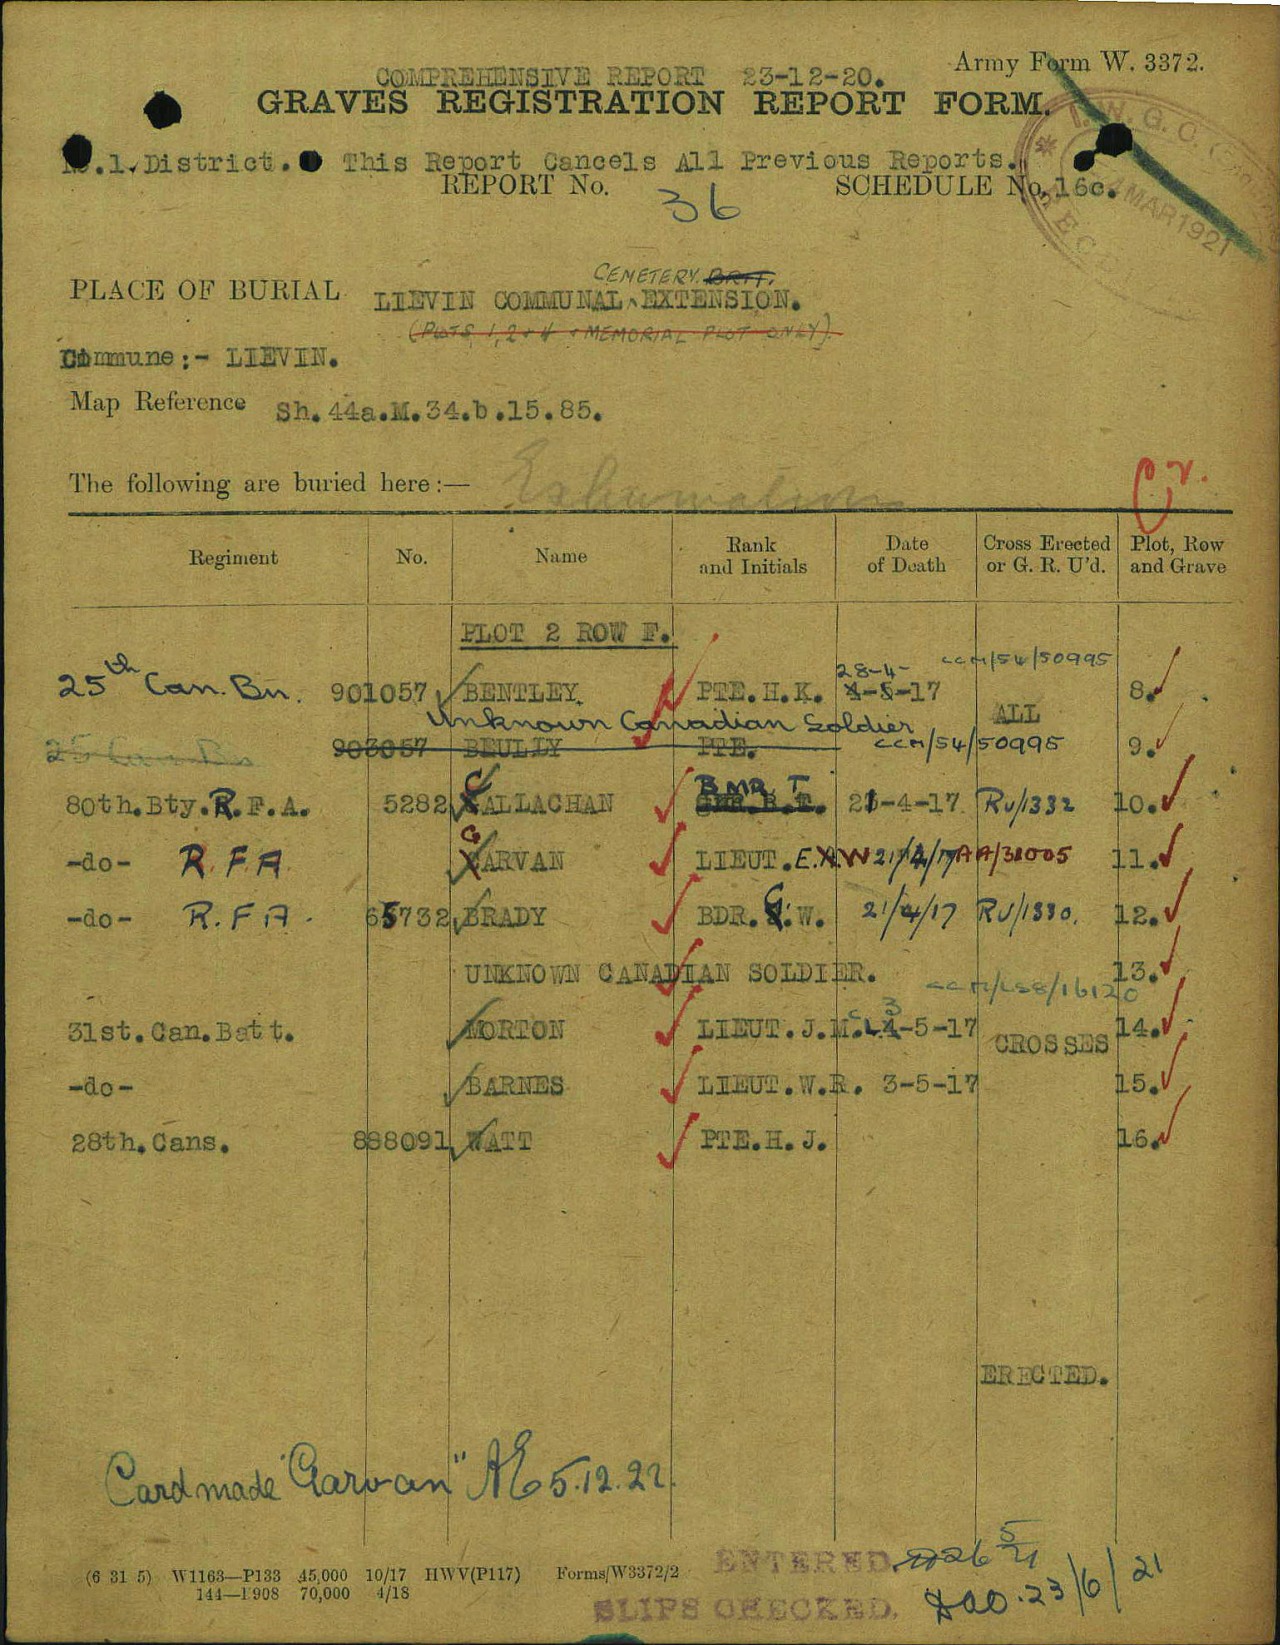 Army Form W. 3372.
COMPREHENSIVE REPORT 23-12-20.
GRAVES REGISTRATION REPORT FORM.
.1. District. This Report Cancels All Previous Reports.
REPORT No. 36 SCHEDULE No. 16c.
I. W. G. C.
4 MAR 1921
CEMETERY BRIT.
PLACE OF BURIAL LIEVIN COMMUNAL ^ EXTENSION.
(PLOTS 1, 2 + 4 + MEMORIAL PLOT ONLY).
Commune:- LIEVIN.
Map Reference Sh.44a.M.34.b.15.85.
The following are buried here:— Exhumation
Regiment No. Name Rank and Initials Date of Death Cross Erected or G. R. U'd. Plot, Row and Grave
PLOT 2 ROW F.
28-4- CCM/54/50995
25th Can. Bn. 901057 BENTLEY. PTE. H. K. 4-5-17 8.
Unknown Canadian Soldier ALL
25 Can Bn 903057 BEULLY PTE. CCM/54/50995 9.
BMDR T
80th. Bty. R.F.A. 5282 CALLACHAN 21-4-17 RU/1332 10.
-do- R F A GARVAN LIEUT. E. W 21/4/17 AA/31005 11.
-do- R.F.A. 65732 BRADY BDR. C. W. 21/4/17 RU/1330. 12.
UNKNOWN CANADIAN SOLDIER. 13.
31st. Can. Batt. MORTON LIEUT. J. M. 3 4-5-17 CROSSES 14.
-do- BARNES LIEUT. W. R. 3-5-17 15.
28th. Cans. 888091 WATT PTE. H. J. 16.
ERECTED.
Card made "Garvan" AE 5.12.22.
(6 31 5) W1163—P133 45,000 10/17 HWV(P117) Forms/W3372/2
144—1908 70,000 4/18
ENTERED. 26 5/21
SLIPS CHECKED. 23/6/21